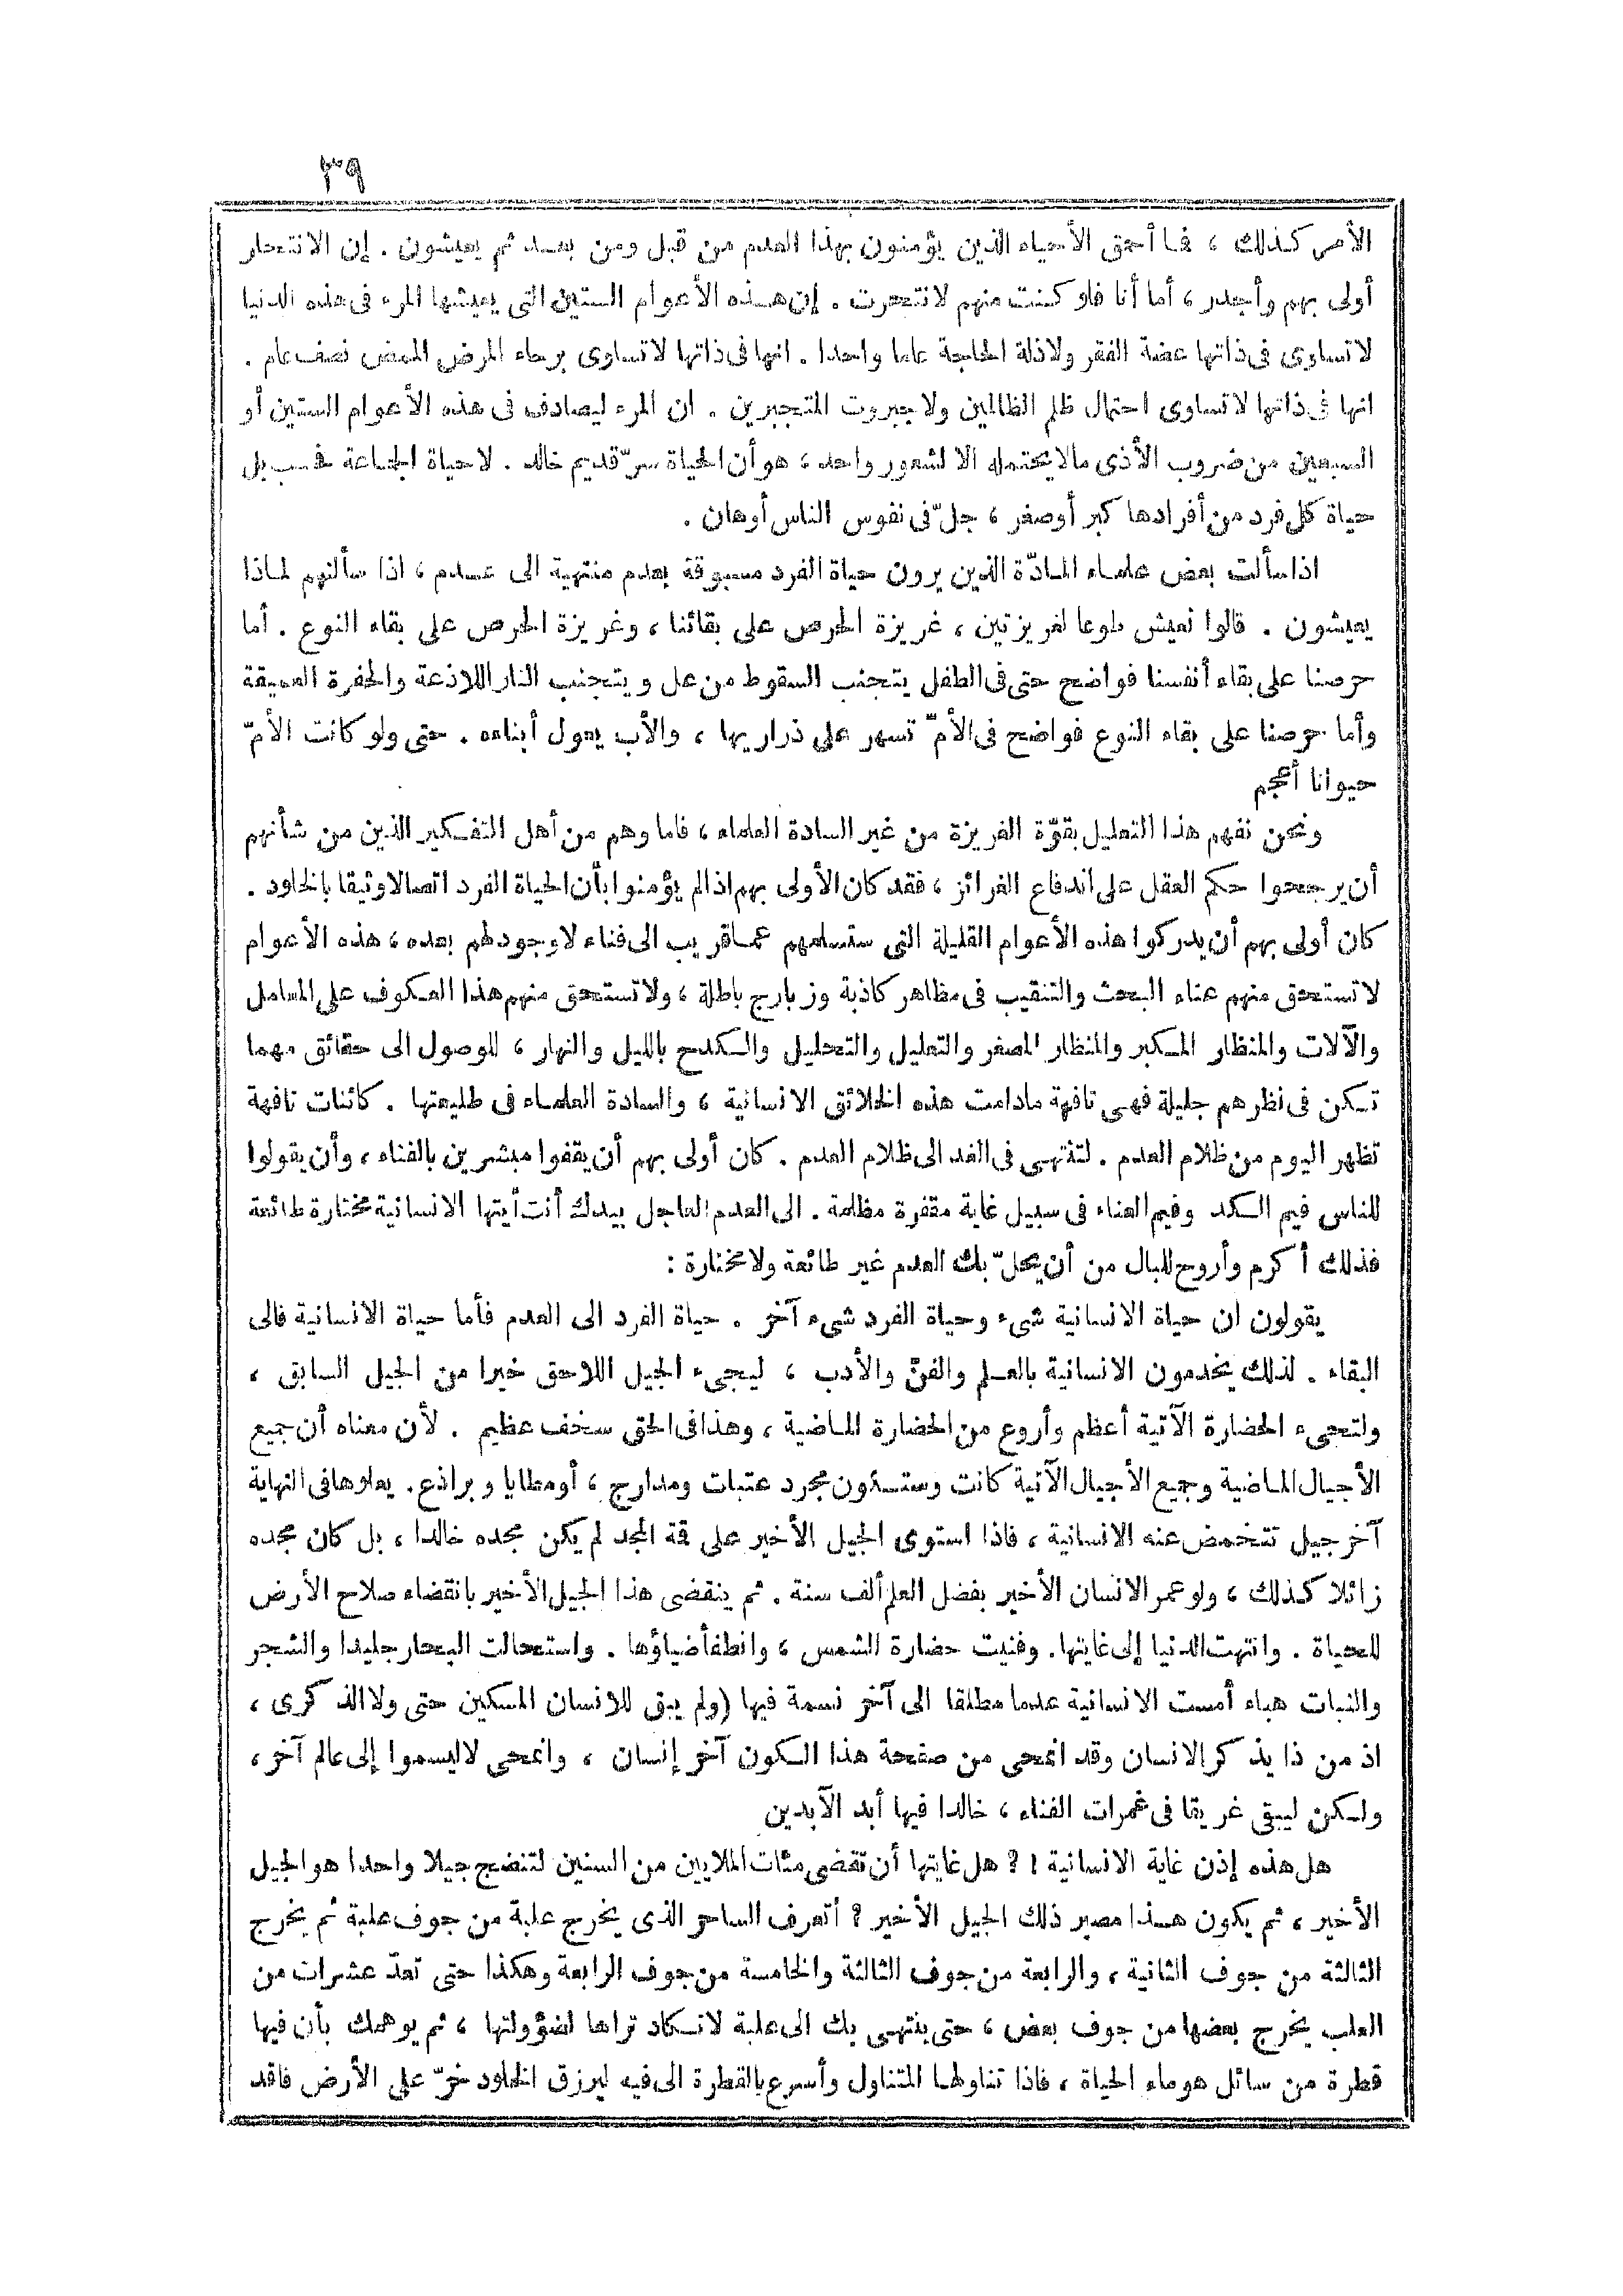 ٣٩
الأمر كذلك ، فما أحمق الأحياء الذين يؤمنون بهذا العدم من قبل ومن بعد ثم يعيشون . إن الانتحار
أولى بهم وأجدر ، أما أنا فلو كنت منهم لانتحرت . إن هذه الأعوام الستين التى يعيشها المرء فى هذه الدنيا
لا تساوى فى ذاتها عضة الفقر ولا ذلة الحاجة عاما واحدا . انها فى ذاتها لا تساوى برحاء المرض الممض نصف عام .
انها فى ذاتها لا تساوى احتمال ظلم الظالمين ولا جبروت المتجبرين . ان المرء ليصادف فى هذه الأعوام الستين أو
السبعين من ضروب الأذى مالا يحتمله الا لشعور واحد ، هو أن الحياة سرّ قديم خالد . لا حياة الجماعة فحسب بل
حياة كل فرد من أفرادها كبر أو صغر ، جلّ فى نفوس الناس أوهان .
اذا سألت بعض علماء المادّة الذين يرون حياة الفرد مسبوقة بعدم منتهية الى عدم ، اذا سألتهم لماذا
يعيشون . قالوا نعيش طوعا لغريزتين ، غريزة الحرص على بقائنا ، وغريزة الحرص على بقاء النوع . أما
حرصنا على بقاء أنفسنا فواضح حتى فى الطفل يتجنب السقوط من عل ويتجنب النار اللاذعة والحفرة العميقة
وأما حرصنا على بقاء النوع فواضح فى الأمّ تسهر على ذراريها ، والأب يعول أبناءه . حتى ولو كانت الأمّ
حيوانا أعجم
ونحن نفهم هذا التعليل بقوّة الغريزة من غير السادة العلماء ، فاما وهم من أهل التفكير الذين من شأنهم
أن يرجحوا حكم العقل على اندفاع الغرائز ، فقد كان الأولى بهم اذا لم يؤمنوا بأن الحياة الفرد اتصالا وثيقا بالخلود .
كان أولى بهم أن يدركوا هذه الأعوام القليلة التى ستسلمهم عما قريب الى فناء لا وجود لهم بعده ، هذه الأعوام
لا تستحق منهم عناء البحث والتنقيب فى مظاهر كاذبة وزبارج باطلة ، ولا تستحق منهم هذا العكوف على المعامل
والآلات والمنظار المكبر والمنظار المصغر والتعليل والتحليل والكدح بالليل والنهار ، للوصول الى حقائق مهما
تكن فى نظرهم جليلة فهى تافهة مادامت هذه الخلائق الانسانية ، والسادة العلماء فى طليعتها . كائنات تافهة
تظهر اليوم من ظلام العدم . لتنتهى فى الغد الى ظلام العدم . كان أولى بهم أن يقفوا مبشرين بالفناء ، وأن يقولوا
للناس فيم الكد وفيم العناء فى سبيل غاية مقفرة مظلمة . الى العدم العاجل بيدك أنت أيتها الانسانية مختارة طائعة
فذلك أكرم وأروح للبال من أن يحلّ بك العدم غير طائعة ولا مختارة :
يقولون ان حياة الانسانية شىء وحياة الفرد شىء آخر . حياة الفرد الى العدم فأما حياة الانسانية فالى
البقاء . لذلك يخدمون الانسانية بالعلم والفنّ والأدب ، ليجىء الجيل اللاحق خيرا من الجيل السابق ،
ولتجىء الحضارة الآتية أعظم وأروع من الحضارة الماضية ، وهذا فى الحق سخف عظيم . لأن معناه أن جميع
الأجيال الماضية وجميع الأجيال الآتية كانت وستكون مجرد عتبات ومدارج ، أو مطايا وبراذع . يعلوها فى النهاية
آخر جيل تتخمض عنه الانسانية ، فاذا استوى الجيل الأخير على قمة المجد لم يكن مجده خالدا ، بل كان مجده
زائلا كذلك ، ولو عمر الانسان الأخير بفضل العلم ألف سنة . ثم ينقضى هذا الجيل الأخير بانقضاء صلاح الأرض
للحياة . وانتهت الدنيا إلى غايتها . وفنيت حضارة الشمس ، وانطفأ ضياؤها . واستحالت البحار جليدا والشجر
والنبات هباء أمست الانسانية عدما مطلقا الى آخر نسمة فيها (ولم يبق للانسان المسكين حتى ولا الذكرى ،
اذ من ذا يذكر الانسان وقد انمحى من صفحة هذا الكون آخر إنسان ، وانمحى لا ليسموا إلى عالم آخر ،
ولكن ليبقى غريقا فى غمرات الفناء ، خالدا فيها أبد الآبدين
هل هذه إذن غاية الانسانية ! ؟ هل غايتها أن تقضى مئات الملايين من السنين لتنضج جيلا واحدا هو الجيل
الأخير ، ثم يكون هذا مصير ذلك الجيل الأخير ؟ أتعرف الساحر الذى يخرج علبة من جوف علبة ثم يخرج
الثالثة من جوف الثانية ، والرابعة من جوف الثالثة والخامسة من جوف الرابعة وهكذا حتى تعدّ عشرات من
العلب يخرج بعضها من جوف بعض ، حتى ينتهى بك الى علبة لا تكاد تراها لضؤولتها ، ثم يوهمك بأن فيها
قطرة من سائل هو ماء الحياة ، فاذا تناولها المتناول وأسرع بالقطرة الى فيه ليرزق الخلود خرّ على الأرض فاقد